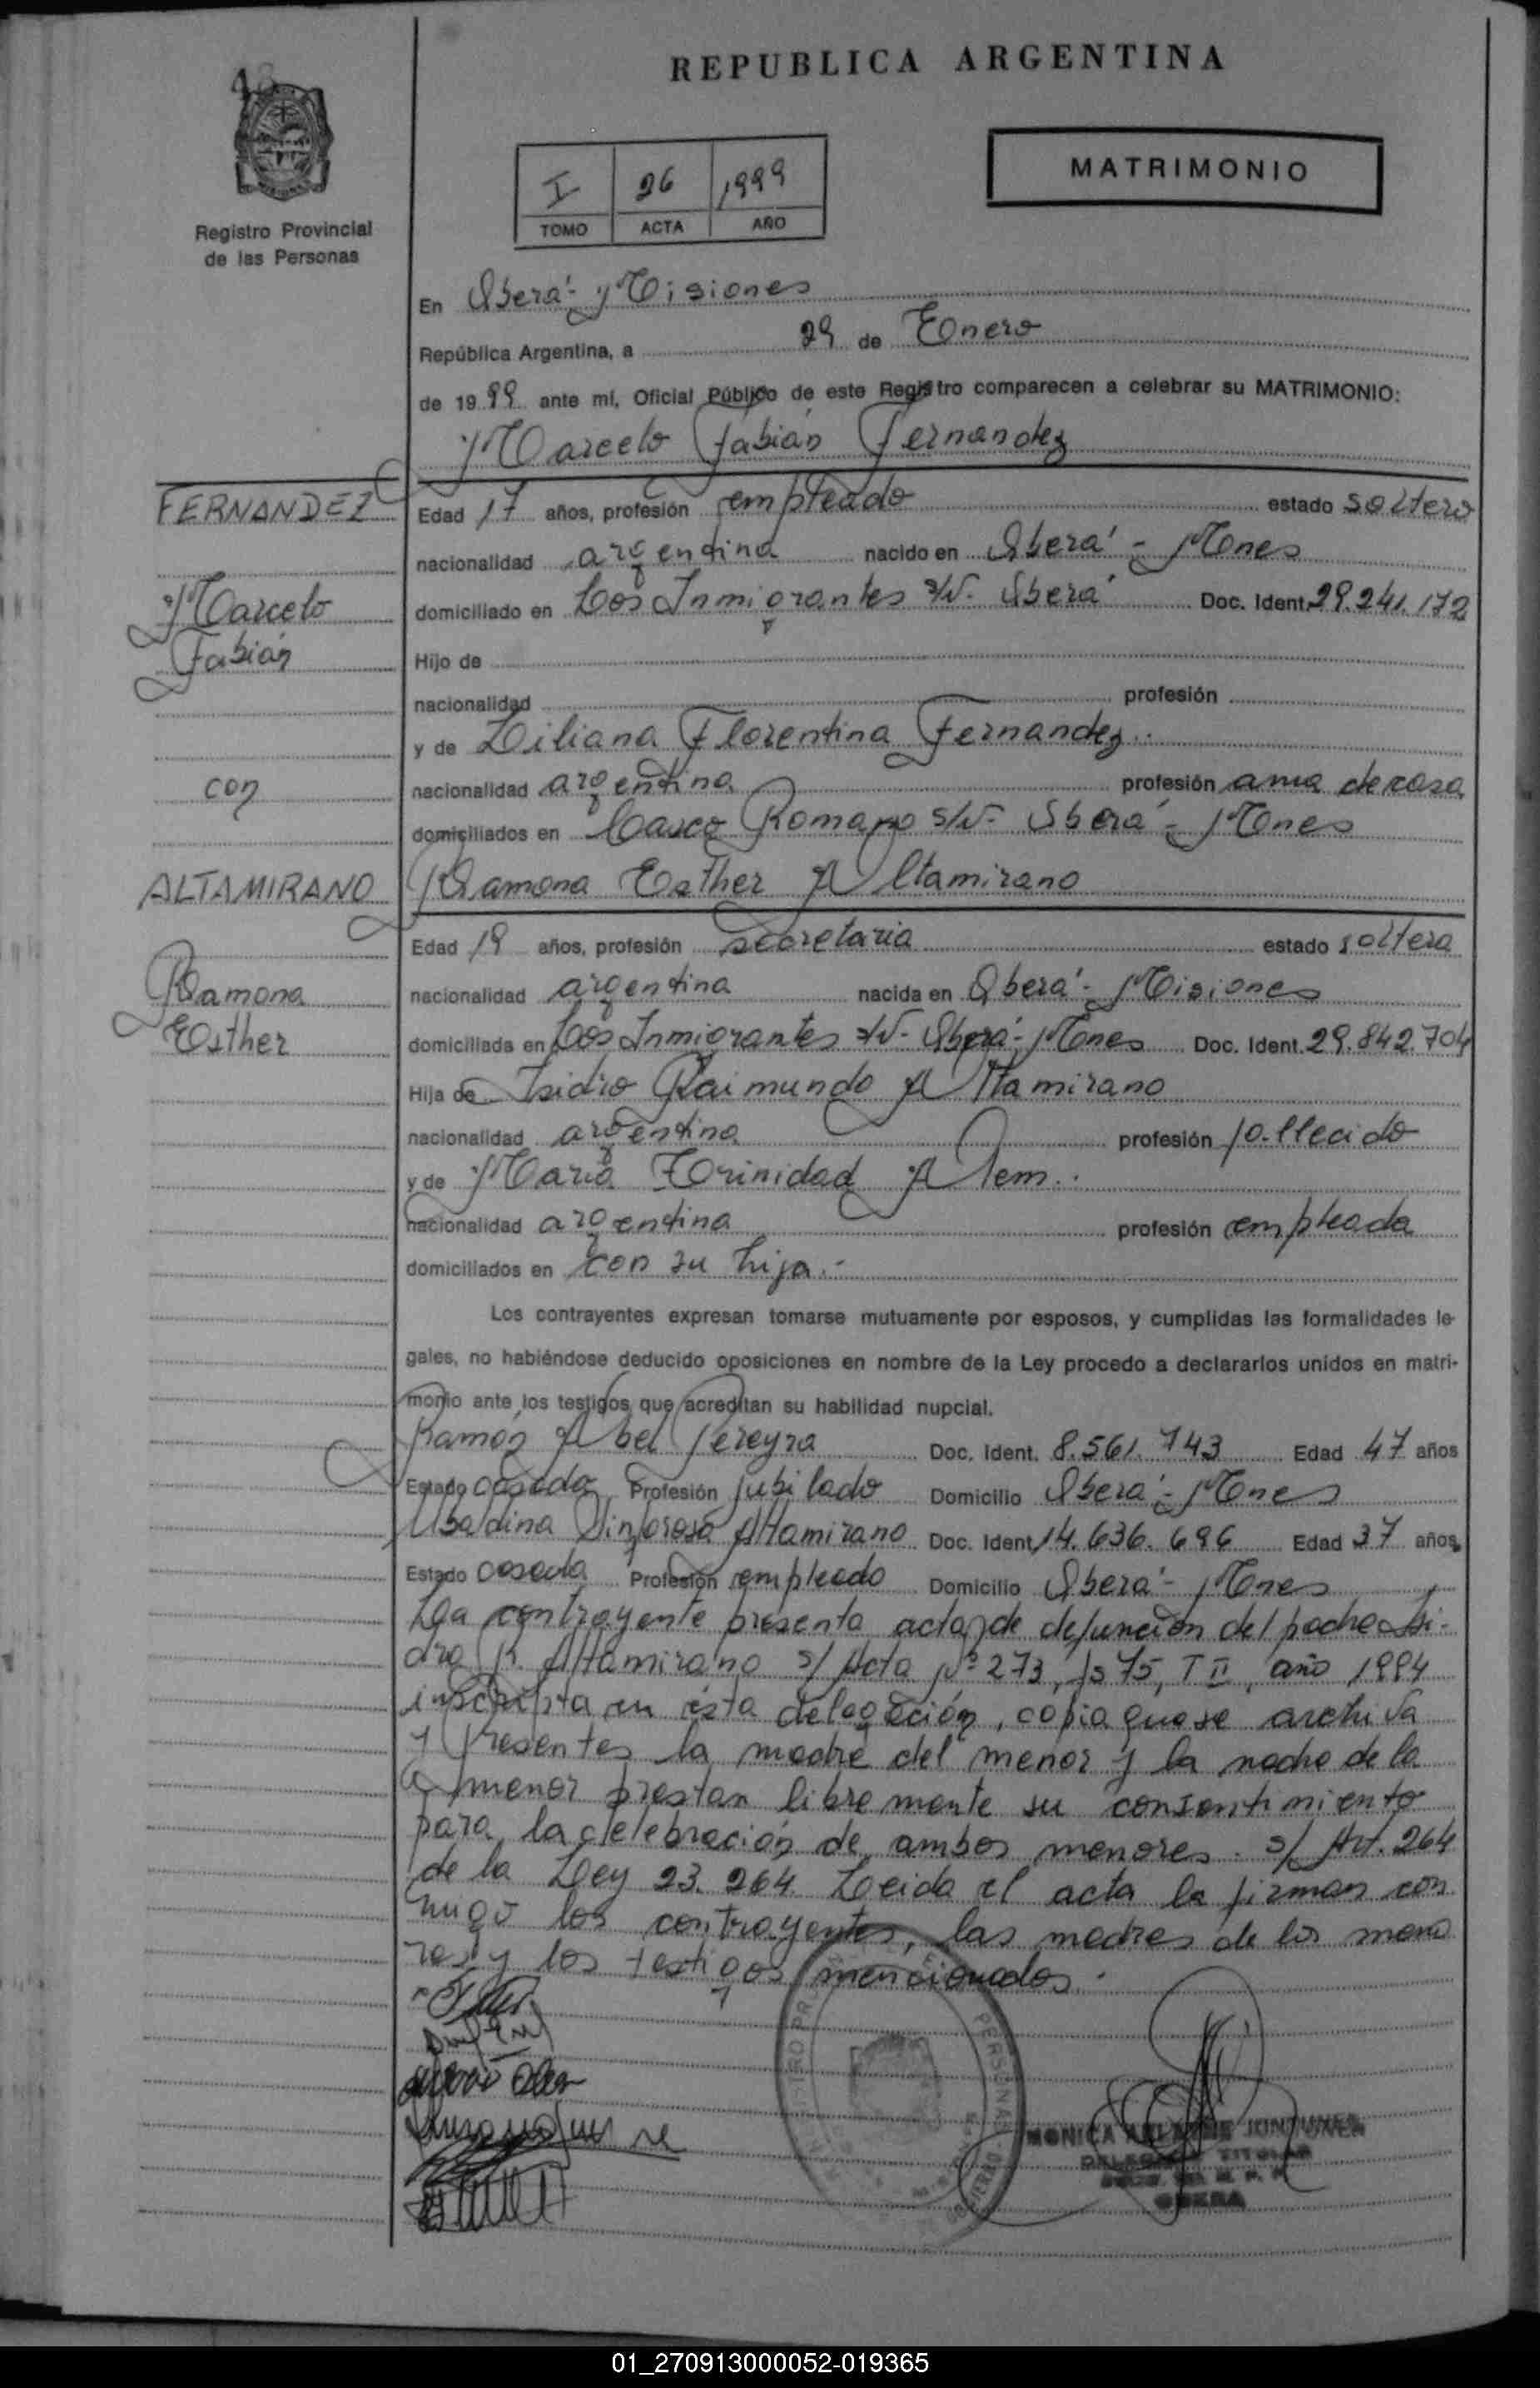 REPUBLICA ARGENTINA
MATRIMONIO
I 26 1999
TOMO ACTA AÑO
Registro Provincial
de las Personas
En Oberá - Misiones
República Argentina, a 29 de Enero
de 1999 ante mí, Oficial Público de este Registro comparecen a celebrar su MATRIMONIO:
Marcelo Fabián Fernandez
FERNANDEZ
Marcelo
Fabián
con
ALTAMIRANO
Ramona
Esther
Edad 17 años, profesión empleado estado soltero
nacionalidad argentina nacido en Oberá - Mones
domiciliado en Los Inmigrantes s/N- Oberá Doc. Ident. 29.241.172
Hijo de
nacionalidad profesión
y de Liliana Florentina Fernandez..
nacionalidad argentina profesión ama de casa
domiciliados en Casco Romano s/N- Oberá - Mones
Ramona Esther Altamirano
Edad 19 años, profesión secretaria estado soltera
nacionalidad argentina nacida en Oberá - Misiones
domiciliada en Los Inmigrantes s/N- Oberá - Mones Doc. Ident. 29.842.704
Hija de Isidro Raimundo Altamirano
nacionalidad argentina profesión fallecido
y de María Trinidad Alem..
nacionalidad argentina profesión empleada
domiciliados en con su hija.-
Los contrayentes expresan tomarse mutuamente por esposos, y cumplidas las formalidades le-
gales, no habiéndose deducido oposiciones en nombre de la Ley procedo a declararlos unidos en matri-
monio ante los testigos que acreditan su habilidad nupcial.
Ramón Abel Pereyra Doc. Ident. 8.561.743 Edad 47 años
Estado casado Profesión jubilado Domicilio Oberá - Mones
Ubaldina Sinforosa Altamirano Doc. Ident. 14.636.696 Edad 37 años
Estado casada Profesión empleado Domicilio Oberá - Mones
La contrayente presenta acta de defunción del padre Isi-
dro R. Altamirano s/ Acta Nº 273, fs 75, T II, año 1994
inscripta en ésta delegación, copia que se archiva
Presentes la madre del menor y la madre de la
menor prestan libremente su consentimiento
para la celebración de ambos menores. s/ Art. 264
de la Ley 23.264. Leida el acta la firman con
migo los contrayentes, las madres de los meno
res y los testigos mencionados.
MONICA
TITULAR
OBERA
01_270913000052-019365